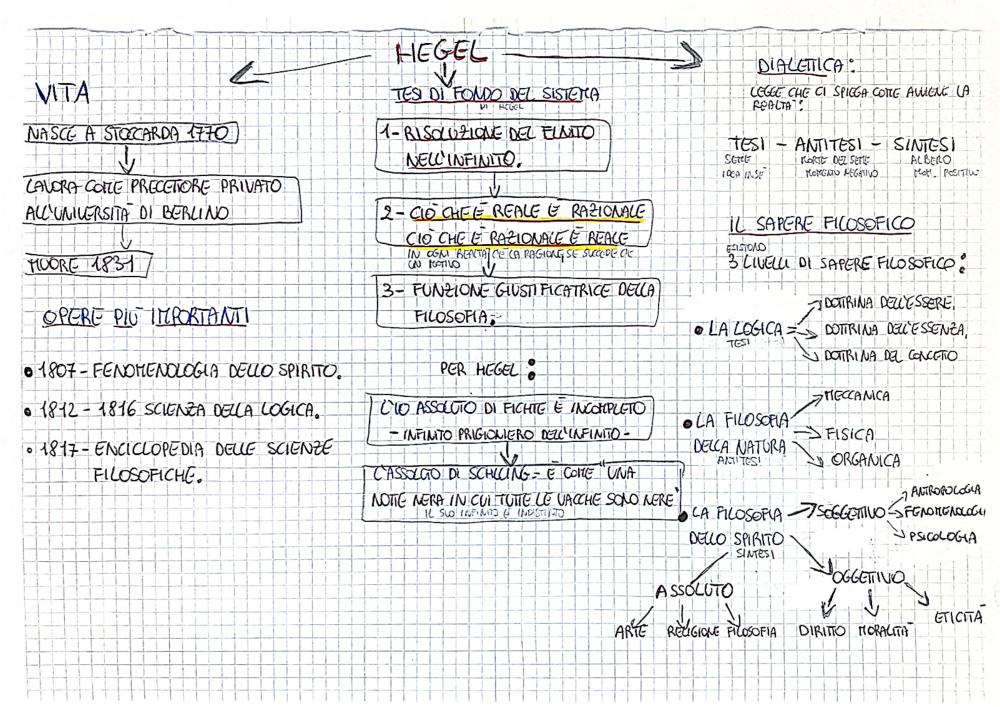 HEGEL
VITA
NASCE A STOCCARDA 1770
LAVORA COME PRECETTORE PRIVATO
ALL'UNIVERSITÀ DI BERLINO
MUORE 1831
OPERE PIÙ IMPORTANTI
• 1807 - FENOMENOLOGIA DELLO SPIRITO.
• 1812 - 1816 SCIENZA DELLA LOGICA.
• 1817 - ENCICLOPEDIA DELLE SCIENZE
FILOSOFICHE.
TESI DI FONDO DEL SISTEMA
DI HEGEL
1 - RISOLUZIONE DEL FINITO
NELL'INFINITO.
2 - CIÒ CHE È REALE È RAZIONALE
CIÒ CHE È RAZIONALE È REALE
IN OGNI REALTÀ C'È LA RAGIONE, SE SUCCEDE C'È
UN MOTIVO
3 - FUNZIONE GIUSTIFICATRICE DELLA
FILOSOFIA.
PER HEGEL :
L'IO ASSOLUTO DI FICHTE È INCOMPLETO
- INFINITO PRIGIONIERO DELL'INFINITO -
L'ASSOLUTO DI SCHILLING = È COME "UNA
NOTTE NERA IN CUI TUTTE LE VACCHE SONO NERE"
IL SUO INFINITO È INDISTINTO
DIALETTICA :
LEGGE CHE CI SPIEGA COME AVVIENE LA
REALTÀ :
TESI - ANTITESI - SINTESI
SEME MORTE DEL SEME ALBERO
IDEA IN SÈ MOMENTO NEGATIVO MOM. POSITIVO
IL SAPERE FILOSOFICO
ESISTONO
3 LIVELLI DI SAPERE FILOSOFICO :
• LA LOGICA =
TESI
DOTTRINA DELL'ESSERE,
DOTTRINA DELL'ESSENZA,
DOTTRINA DEL CONCETTO
• LA FILOSOFIA
DELLA NATURA
ANTITESI
MECCANICA
FISICA
ORGANICA
• LA FILOSOFIA
DELLO SPIRITO
SINTESI
SOGGETTIVO
ANTROPOLOGIA
FENOMENOLOGIA
PSICOLOGIA
OGGETTIVO
DIRITTO MORALITÀ ETICITÀ
ASSOLUTO
ARTE RELIGIONE FILOSOFIA